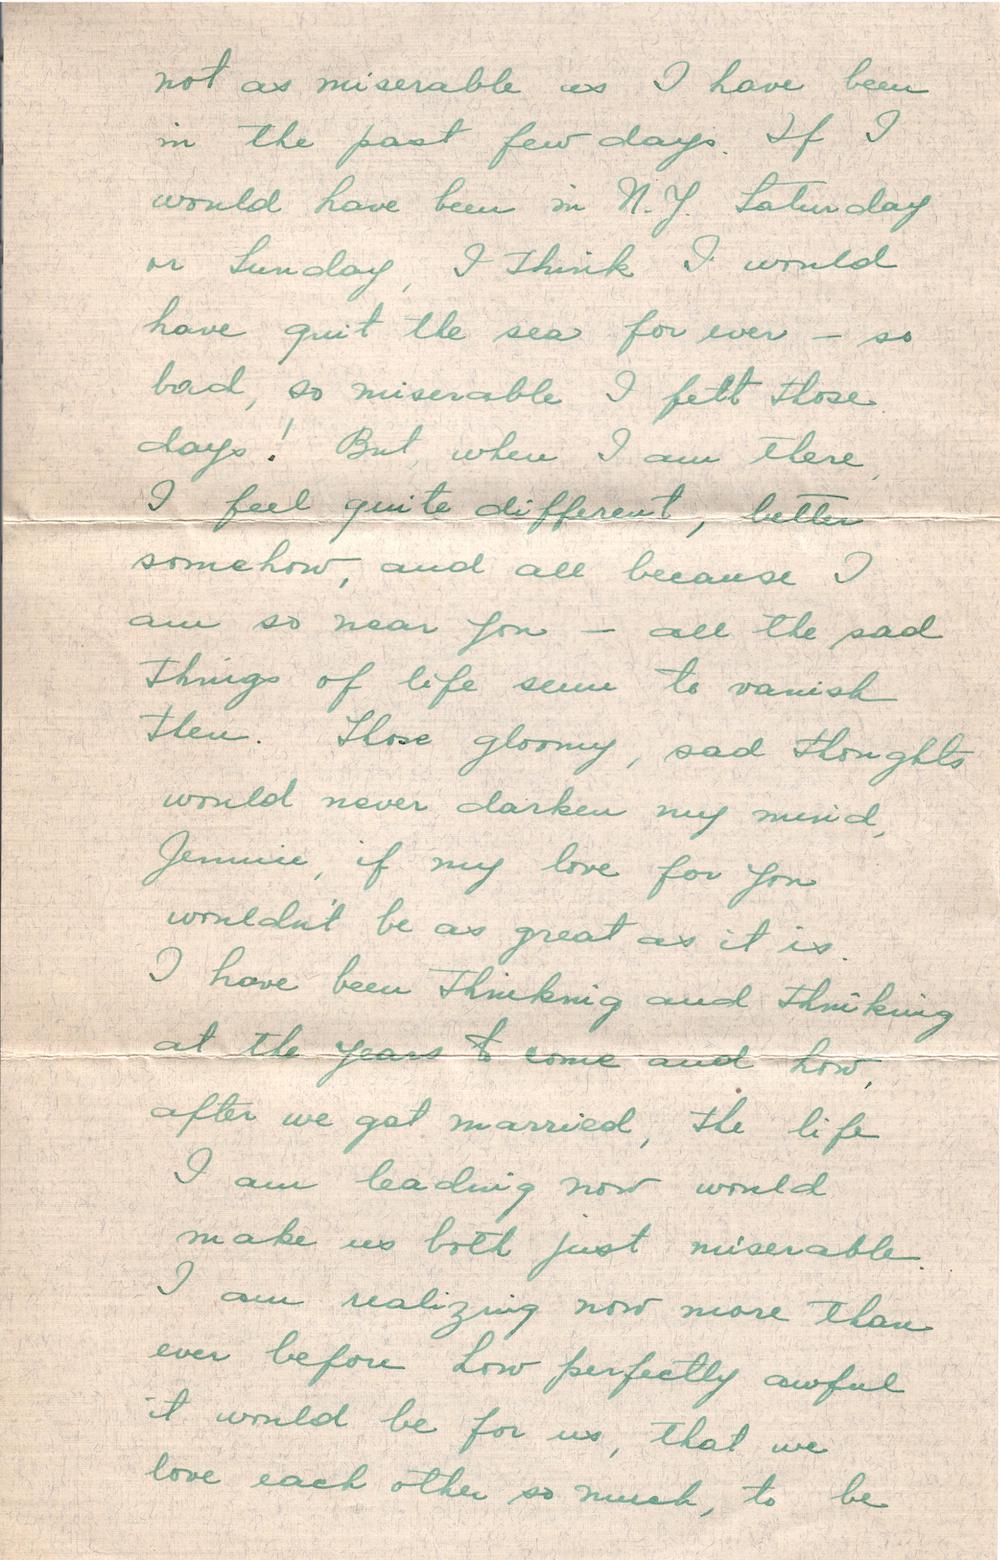 not as miserable as I have been
in the past few days. If I
would have been in N.Y. Saturday
or Sunday, I think I would
have quit the sea for ever – so
bad, so miserable I felt those
days! But, when I am there,
I feel quite different, better
somehow, and all because I
am so near you – all the sad
things of life seem to vanish
then. Those gloomy, sad thoughts
would never darken my mind,
Jennie, if my love for you
wouldn't be as great as it is.
I have been thinking and thinking
at the years to come and how,
after we got married, the life
I am leading now would
make us both just miserable.
I am realizing now more than
ever before how perfectly awful
it would be for us, that we
love each other so much, to be